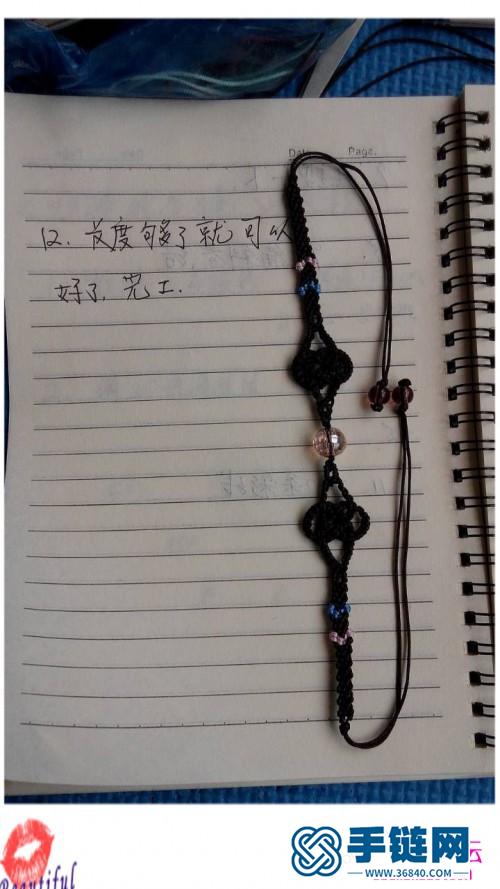 Date. Page.
12. 长度够了就可以
好了，完工.
手链网
www.36840.com
Beautiful